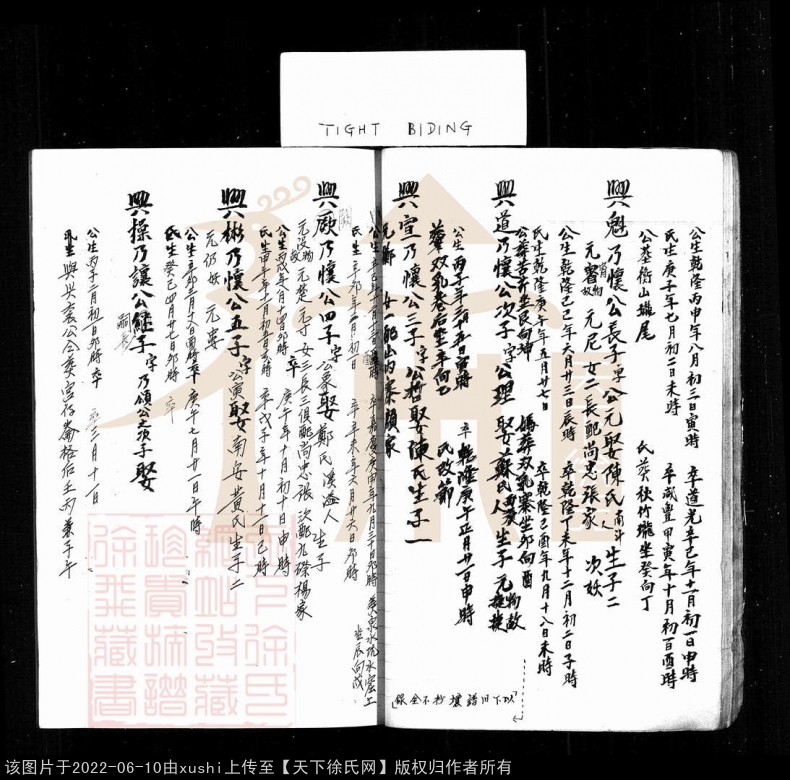 TIGHT BIDING
公生乾隆丙申年八月初三日寅時 卒道光辛巳年十一月初一日申時
氏生庚子年七月初二日未時 卒咸豐甲寅年十月初百酉時
公墓衡山瓏尾 氏葬秋竹瓏坐癸向丁
興魁乃懷公長子字公元娶陳氏南斗人生子二
元 元尼女二長配尚忠張家 次妖
公生乾隆己巳年六月廿三日辰時 卒乾隆丁未年十二月初二日子時
氏生乾隆庚子年五月廿七日 卒乾隆己酉年九月十八日未時
公葬苦坑坐艮向坤 媽葬双乳寨坐卯向酉
興道乃懷公次子字公理 娶蘇氏人生子元
公生丙子年三月十五日寅時 卒乾隆庚午正月廿一日申時
葬双乳巷后坐辛向乙 氏改節
興宣乃懷公三子字公哲娶陳氏生子一
元 女一配山內葉顏家
氏生辛卯年二月初一日 卒辛未年六月廿六日卯時 坐辰向戌
興殿乃懷公四子字公象娶鄭氏溪溢人 生子
元 元楚元寸女二長三復配尚忠張 次配九 楊家
公生丙戌年八月十四日卯時 卒庚午年十月初十日申時
氏生甲午年十一月初五日亥時 卒戊子年十月十一日己時
興彬乃懷公五子字公演娶南安黃氏生子二
元仍妖元專
公生辛卯三月十八日酉時 卒庚午七月廿一日午時
氏生癸己四月廿七日卯時 卒
興操乃讓公継子字乃頌公之次子娶
嗣長
公生丙子二月初一日卯時 卒 三月十一日
以下旧譜壞抄不全錄
天下徐氏網站收藏
徐氏珍貴族譜
徐飛藏書
该图片于2022-06-10由xushi上传至【天下徐氏网】版权归作者所有